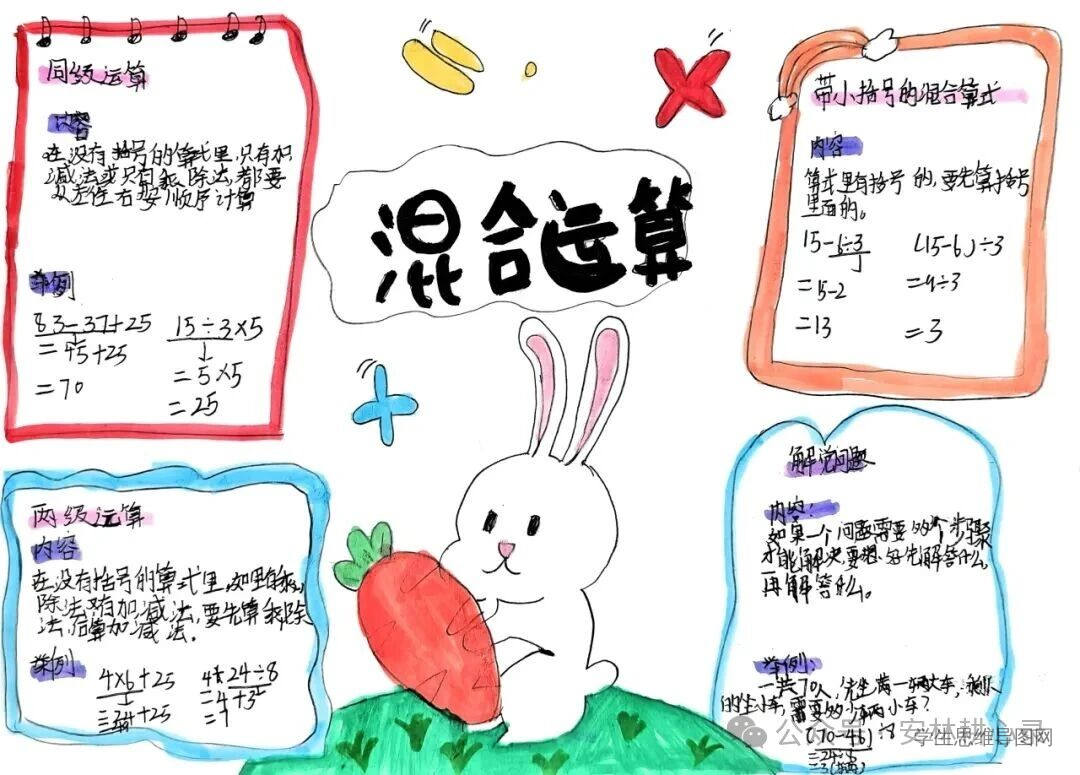 混合运算
同级运算
内容
在没有括号的算式里,只有加
减法或只有乘除法,都要
从左往右按顺序计算
举例
83-37+25
=45+25
=70
15÷3×5
=5×5
=25
带小括号的混合算式
内容
算式里有括号的,要先算括号
里面的。
15-6÷3
=15-2
=13
(15-6)÷3
=9÷3
=3
两级运算
内容
在没有括号的算式里,如果有乘
除法,又有加减法,要先算乘除
法,后算加减法.
举例
4×6+25
4+24÷8
=4+3
=7
解决问题
内容:
如果一个问题需要多个步骤
才能解决,要想好先解答什么,
再解答什么。
举例:
一共70人,先坐满一辆大车,剩下
的坐小车,需要多少辆小车?
(70-46)÷8
公众号 安林耕心录
学生思维导图网